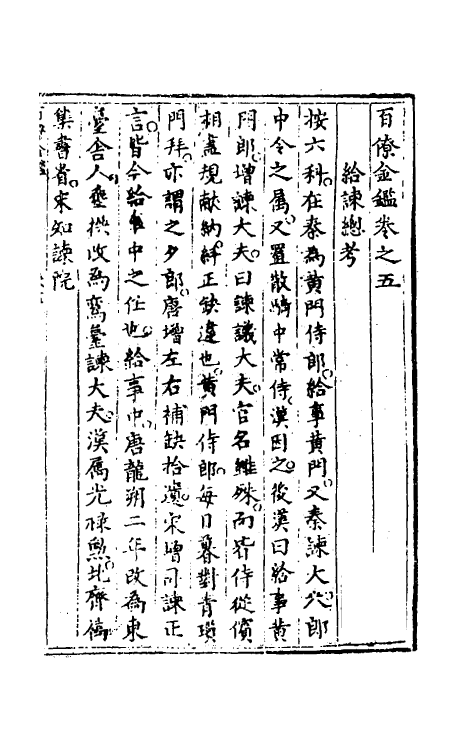 百僚金鑑卷之五
給諫總考
按六科在秦為黃門侍郎給事黃門又秦諫大夫郎
中令之屬又置散騎中常侍漢因之後漢曰給事黃
門郎增諫大夫曰諫議大夫官名雖殊而皆侍從儐
相盡規獻納糾正缺違也黃門侍郎每日暮對青瑣
門拜亦謂之夕郎唐增左右補缺拾遺宋增司諫正
言皆今給事中之任也給事中唐龍朔二年改為東
臺舍人垂拱改為鸞臺諫大夫漢屬光祿勳北齊屬
集書省宋知諫院